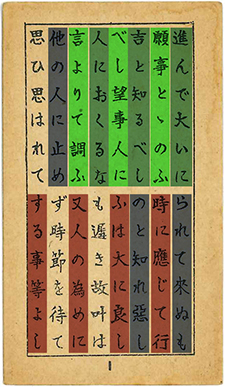 進んで大いに
願事とゝのふ
吉と知るべし
べし望事人に
人におくるな
言よりて調ふ
他の人に止め
思ひ思はれて
られて來ぬも
時に應じて行
のと知れ惡し
ふは大に良し
も遲き故叶は
又人の為めに
ず時節を待て
する事等よし